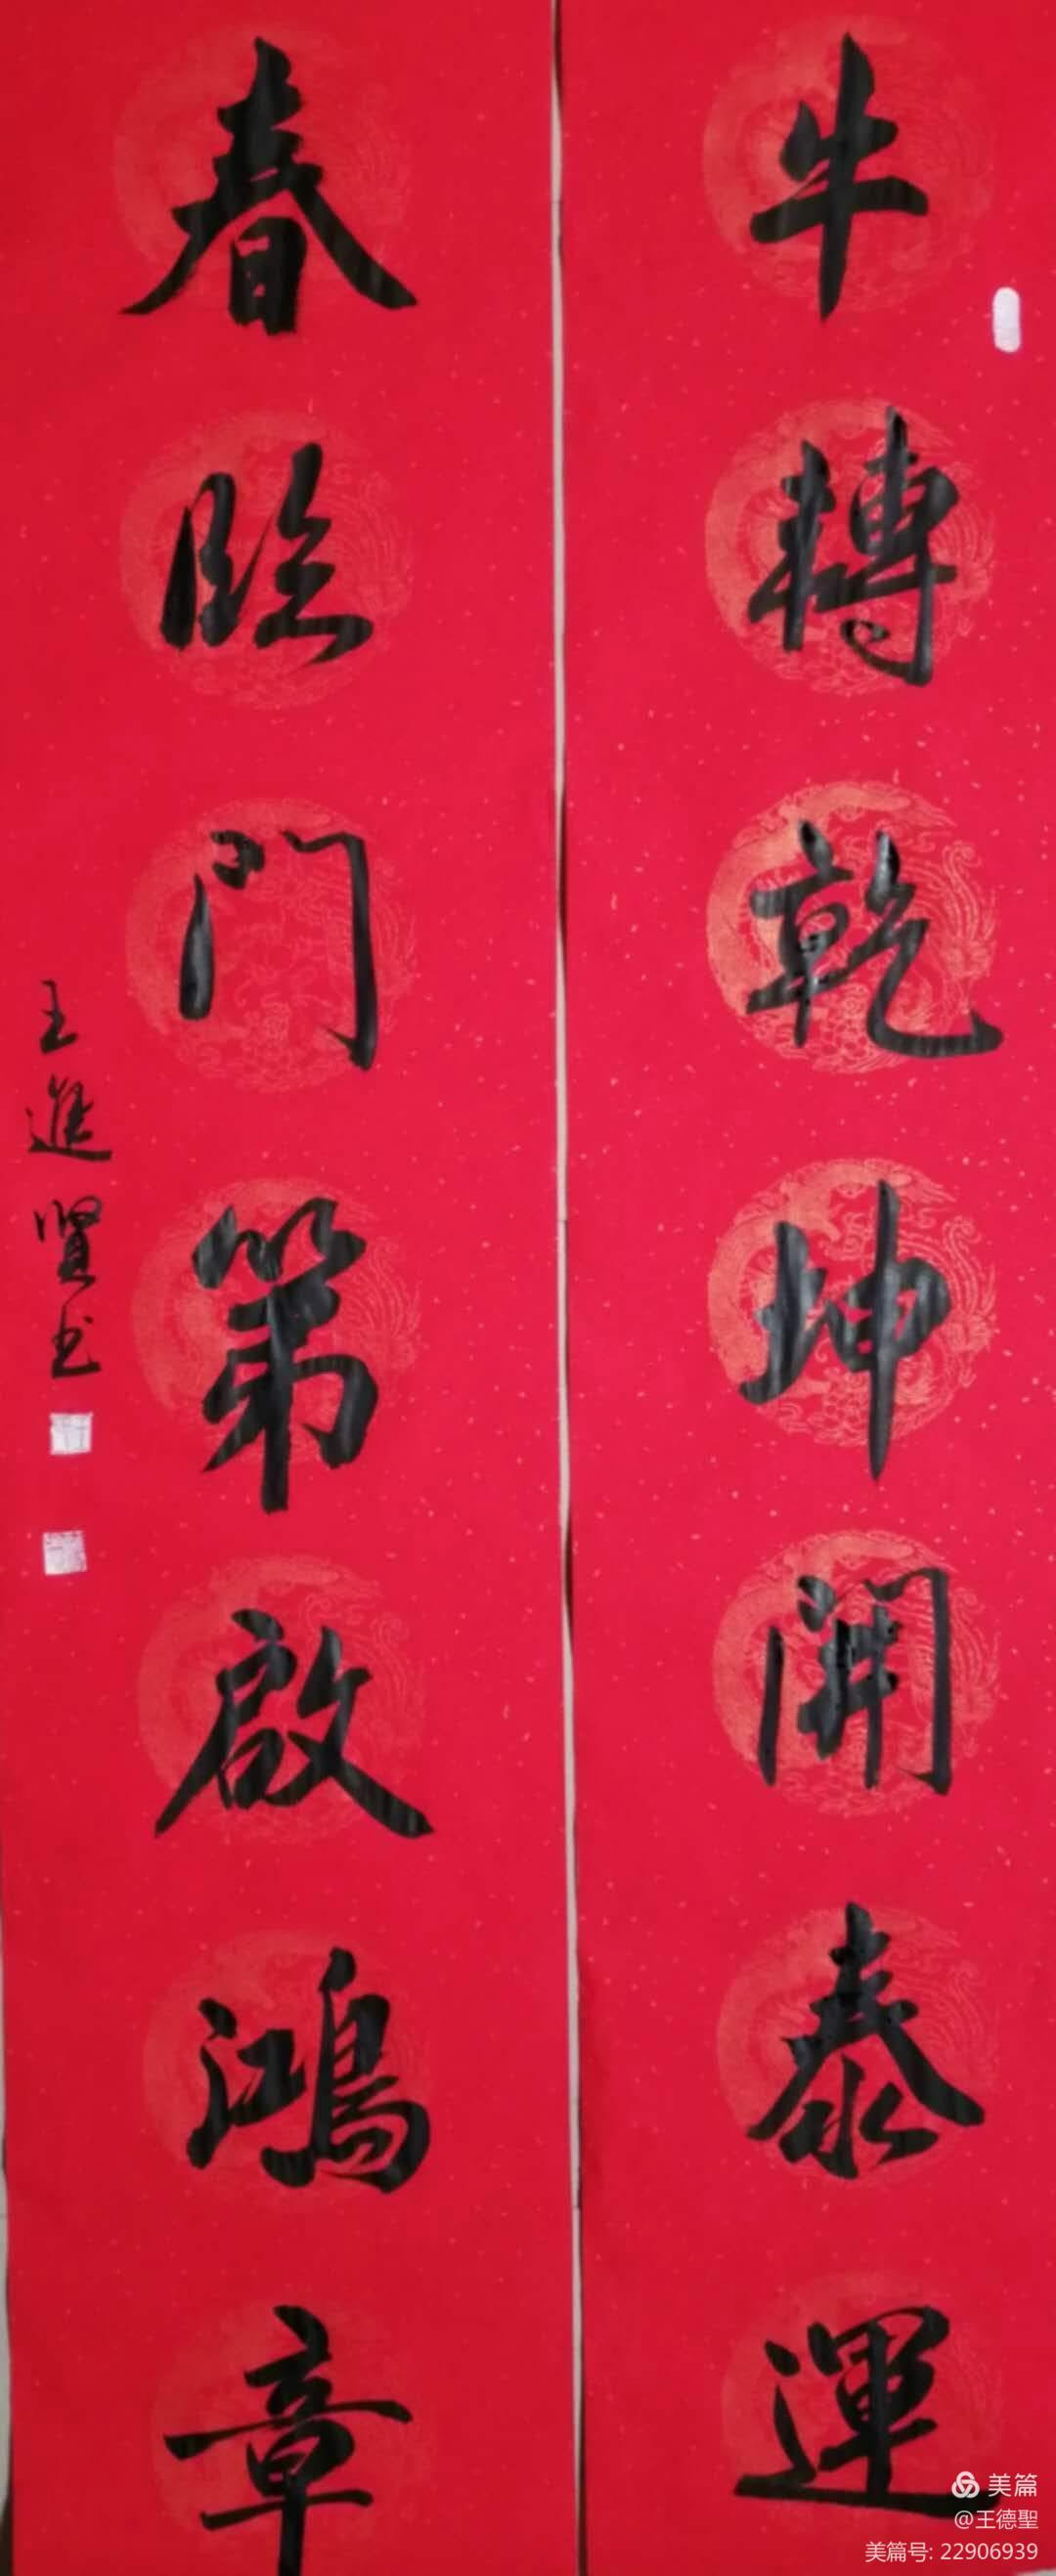 牛轉乾坤開泰運
春臨門第啟鴻章
王進賢书
美篇
@王德聖
美篇号: 22906939